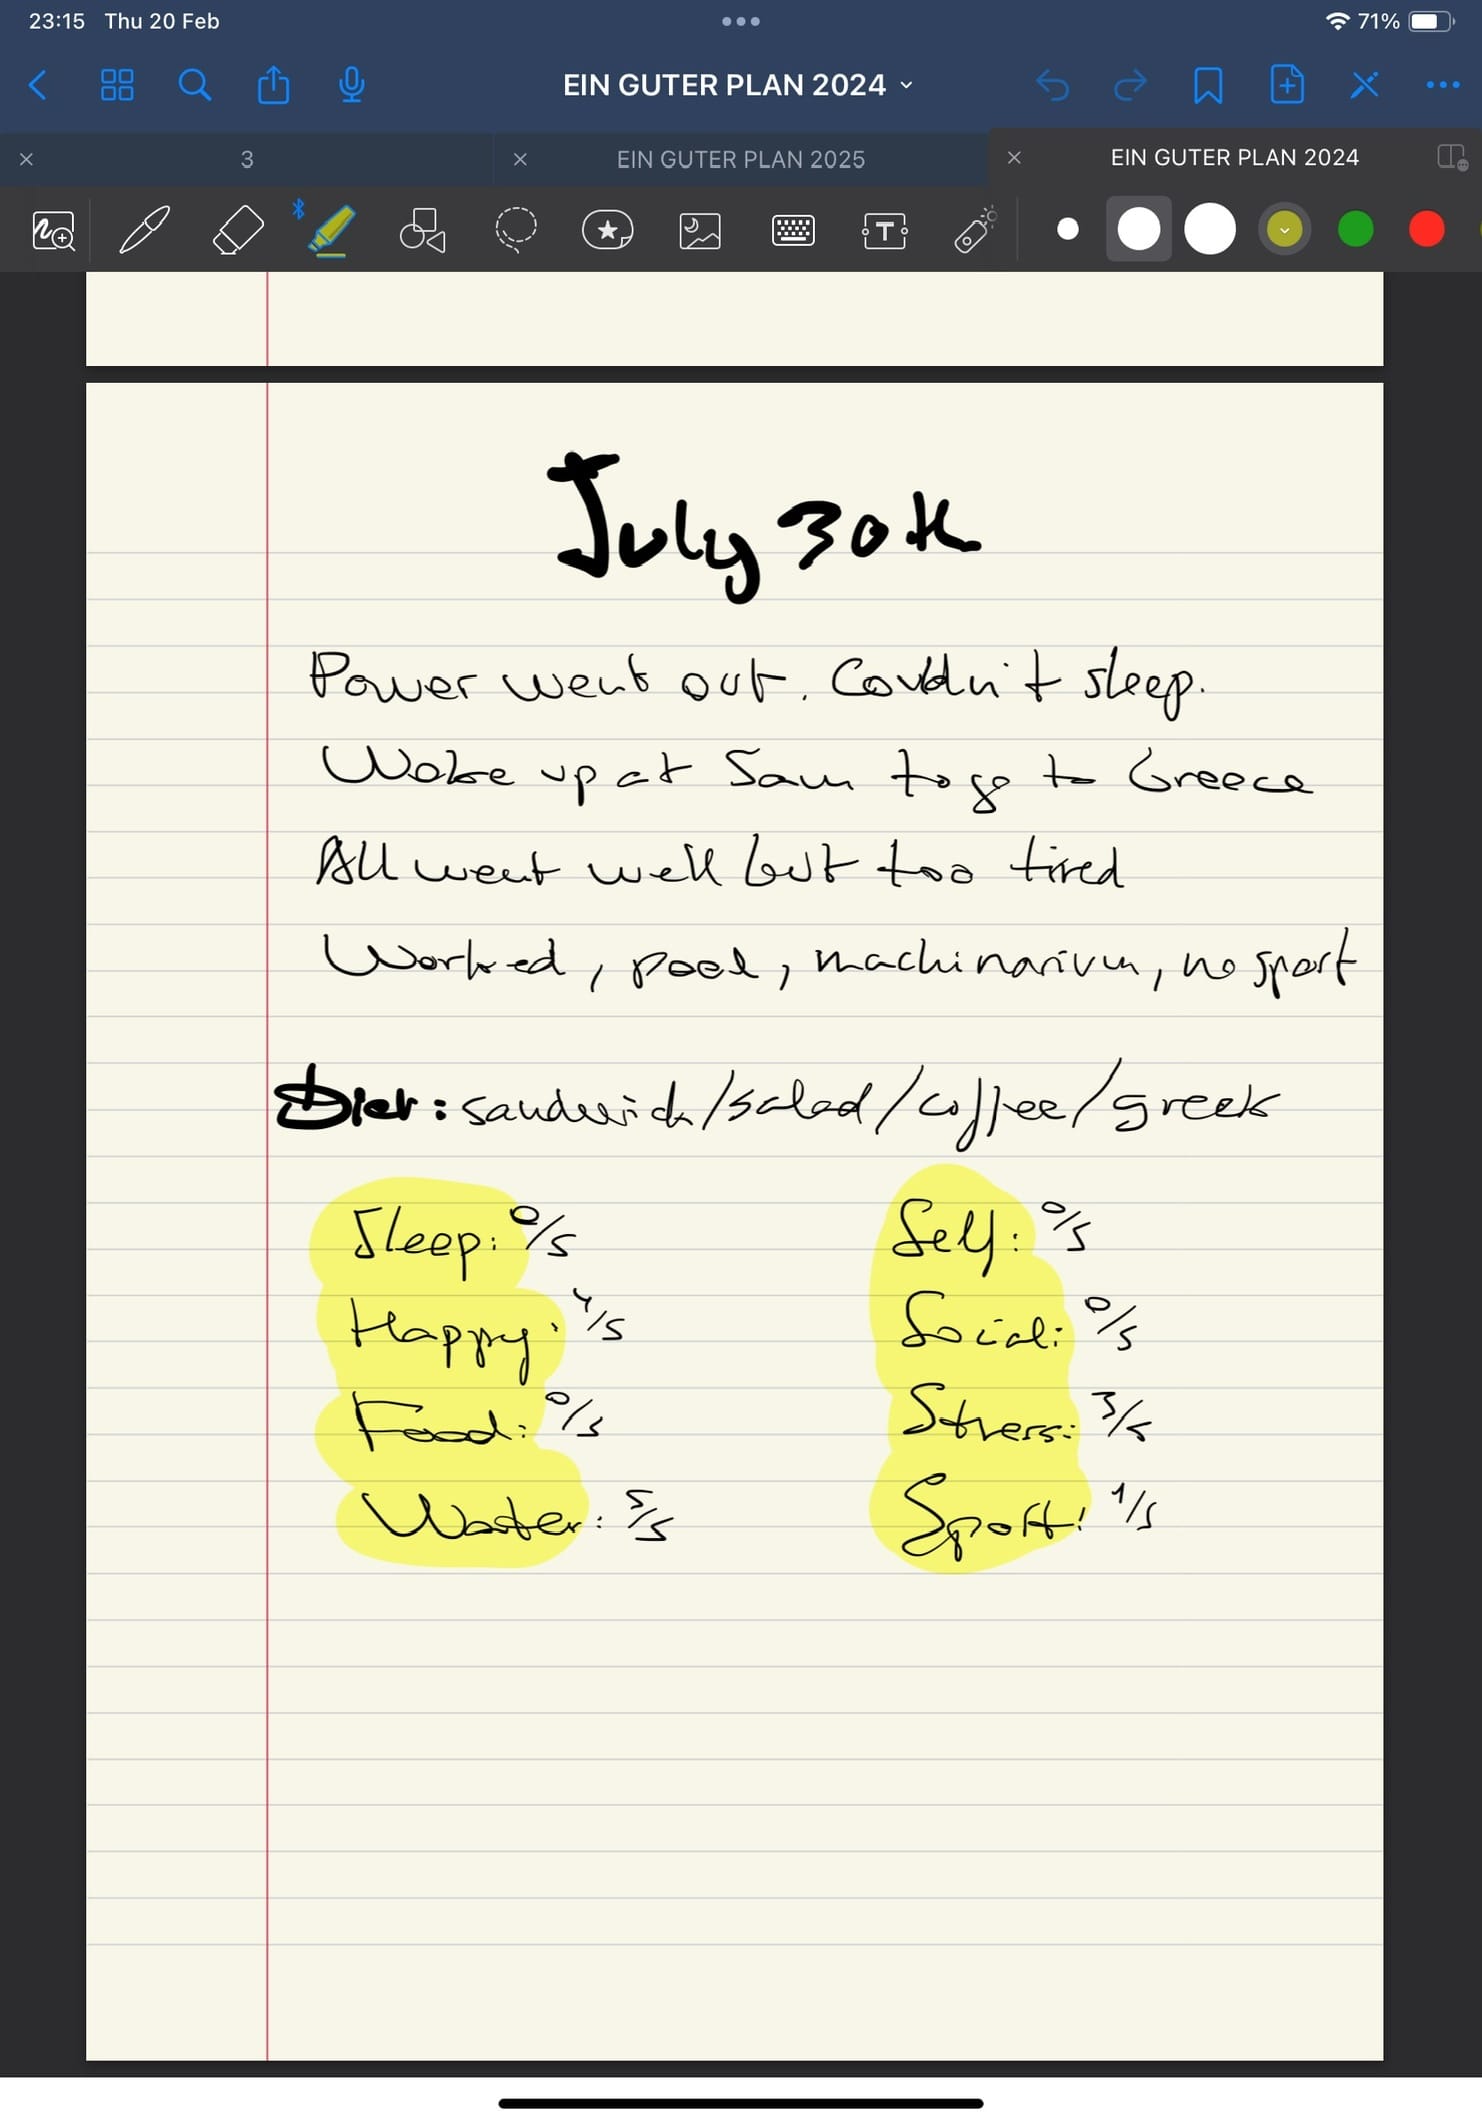 23:15 Thu 20 Feb
71%
EIN GUTER PLAN 2024
3
EIN GUTER PLAN 2025
EIN GUTER PLAN 2024
T
July 30th
Power went out. Couldn't sleep.
Woke up at 5am to go to Greece
All went well but too tired
Worked, pool, machinarium, no sport
Diet: sandwich/salad/coffee/greek
Sleep: 0/5
Self: 0/5
Happy: 4/5
Social: 0/5
Food: 0/5
Stress: 3/5
Water: 5/5
Sport: 1/5